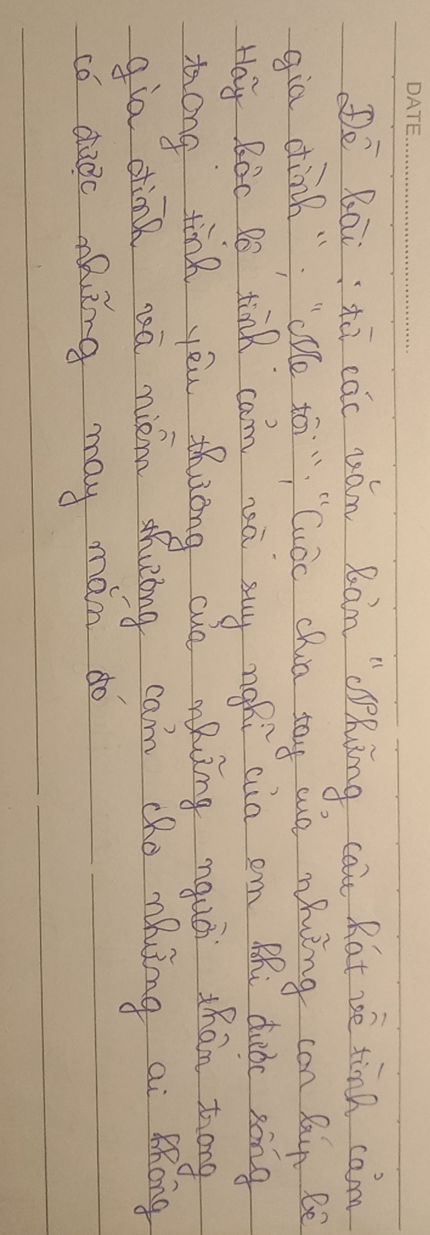 DATE
Đề bài: từ các văn bản "Những câu hát về tình cảm
gia đình", "Mẹ tôi", "Cuộc chia tay của những con búp bê
Hãy bộc lộ tình cảm và suy nghĩ của em khi được sống
trong tình yêu thương của những người thân trong
gia đình và niềm thương cảm cho những ai không
có được những may mắn đó